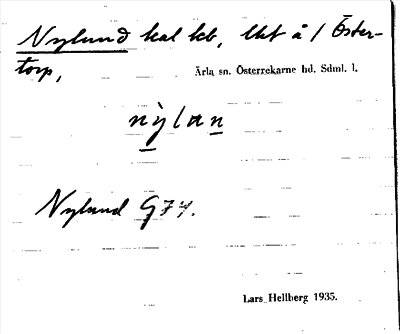 Nylund kal kb, lht å / Öster-
torp,
Ärla sn. Österrekarne hd. Sdml. l.
nỳlan
Nylund G74.
Lars Hellberg 1935.